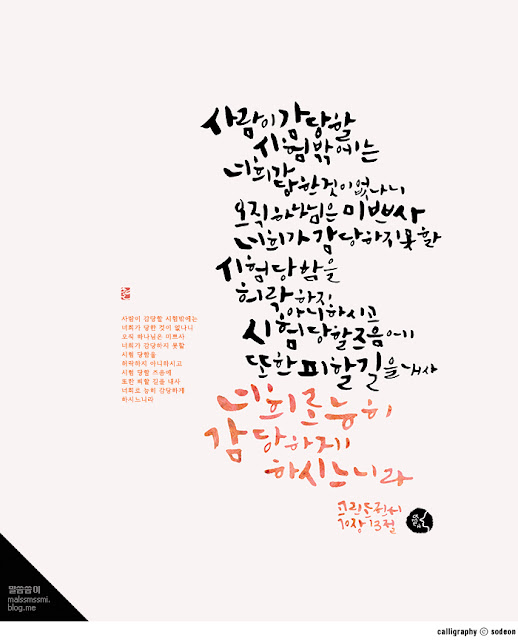 사람이 감당할
시험밖에는
너희가
당한것이없나니
오직 하나님은 미쁘사
너희가 감당하지못할
시험당함을
허락하지
아니하시고
시험당할즈음에
또한피할길을내사
너희르능히
감당하게
하시느니라
고린도전서
10장 13절
사람이 감당할 시험밖에는
너희가 당한 것이 없나니
오직 하나님은 미쁘사
너희가 감당하지 못할
시험 당함을
허락하지 아니하시고
시험 당할 즈음에
또한 피할 길을 내사
너희로 능히 감당하게
하시느니라
말씀씀이
malssmssmi.
blog.me
calligraphy ⓒ sodeon